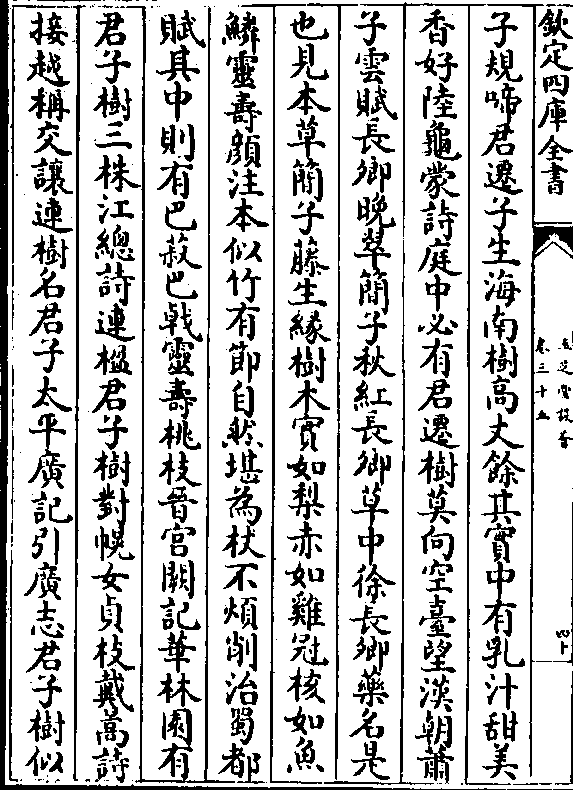 欽定四庫全書
玉芝堂談薈
卷三十五
四十
子規啼君遷子生海南樹高丈餘其實中有乳汁甜美
香好陸龜蒙詩庭中必有君遷樹莫向空臺望漢朝蕭
子雲賦長卿晚翠簡子秋紅長卿草中徐長卿藥名是
也見本草簡子藤生緣樹木實如梨赤如雞冠核如魚
鱗靈壽顔注本似竹有節自然堪為杖不煩削治蜀都
賦其中則有巴菽巴戟靈壽桃枝晉宮闕記華林園有
君子樹三株江總詩連楹君子樹對幌女貞枝戴嵩詩
接越稱交讓連樹名君子太平廣記引廣志君子樹似